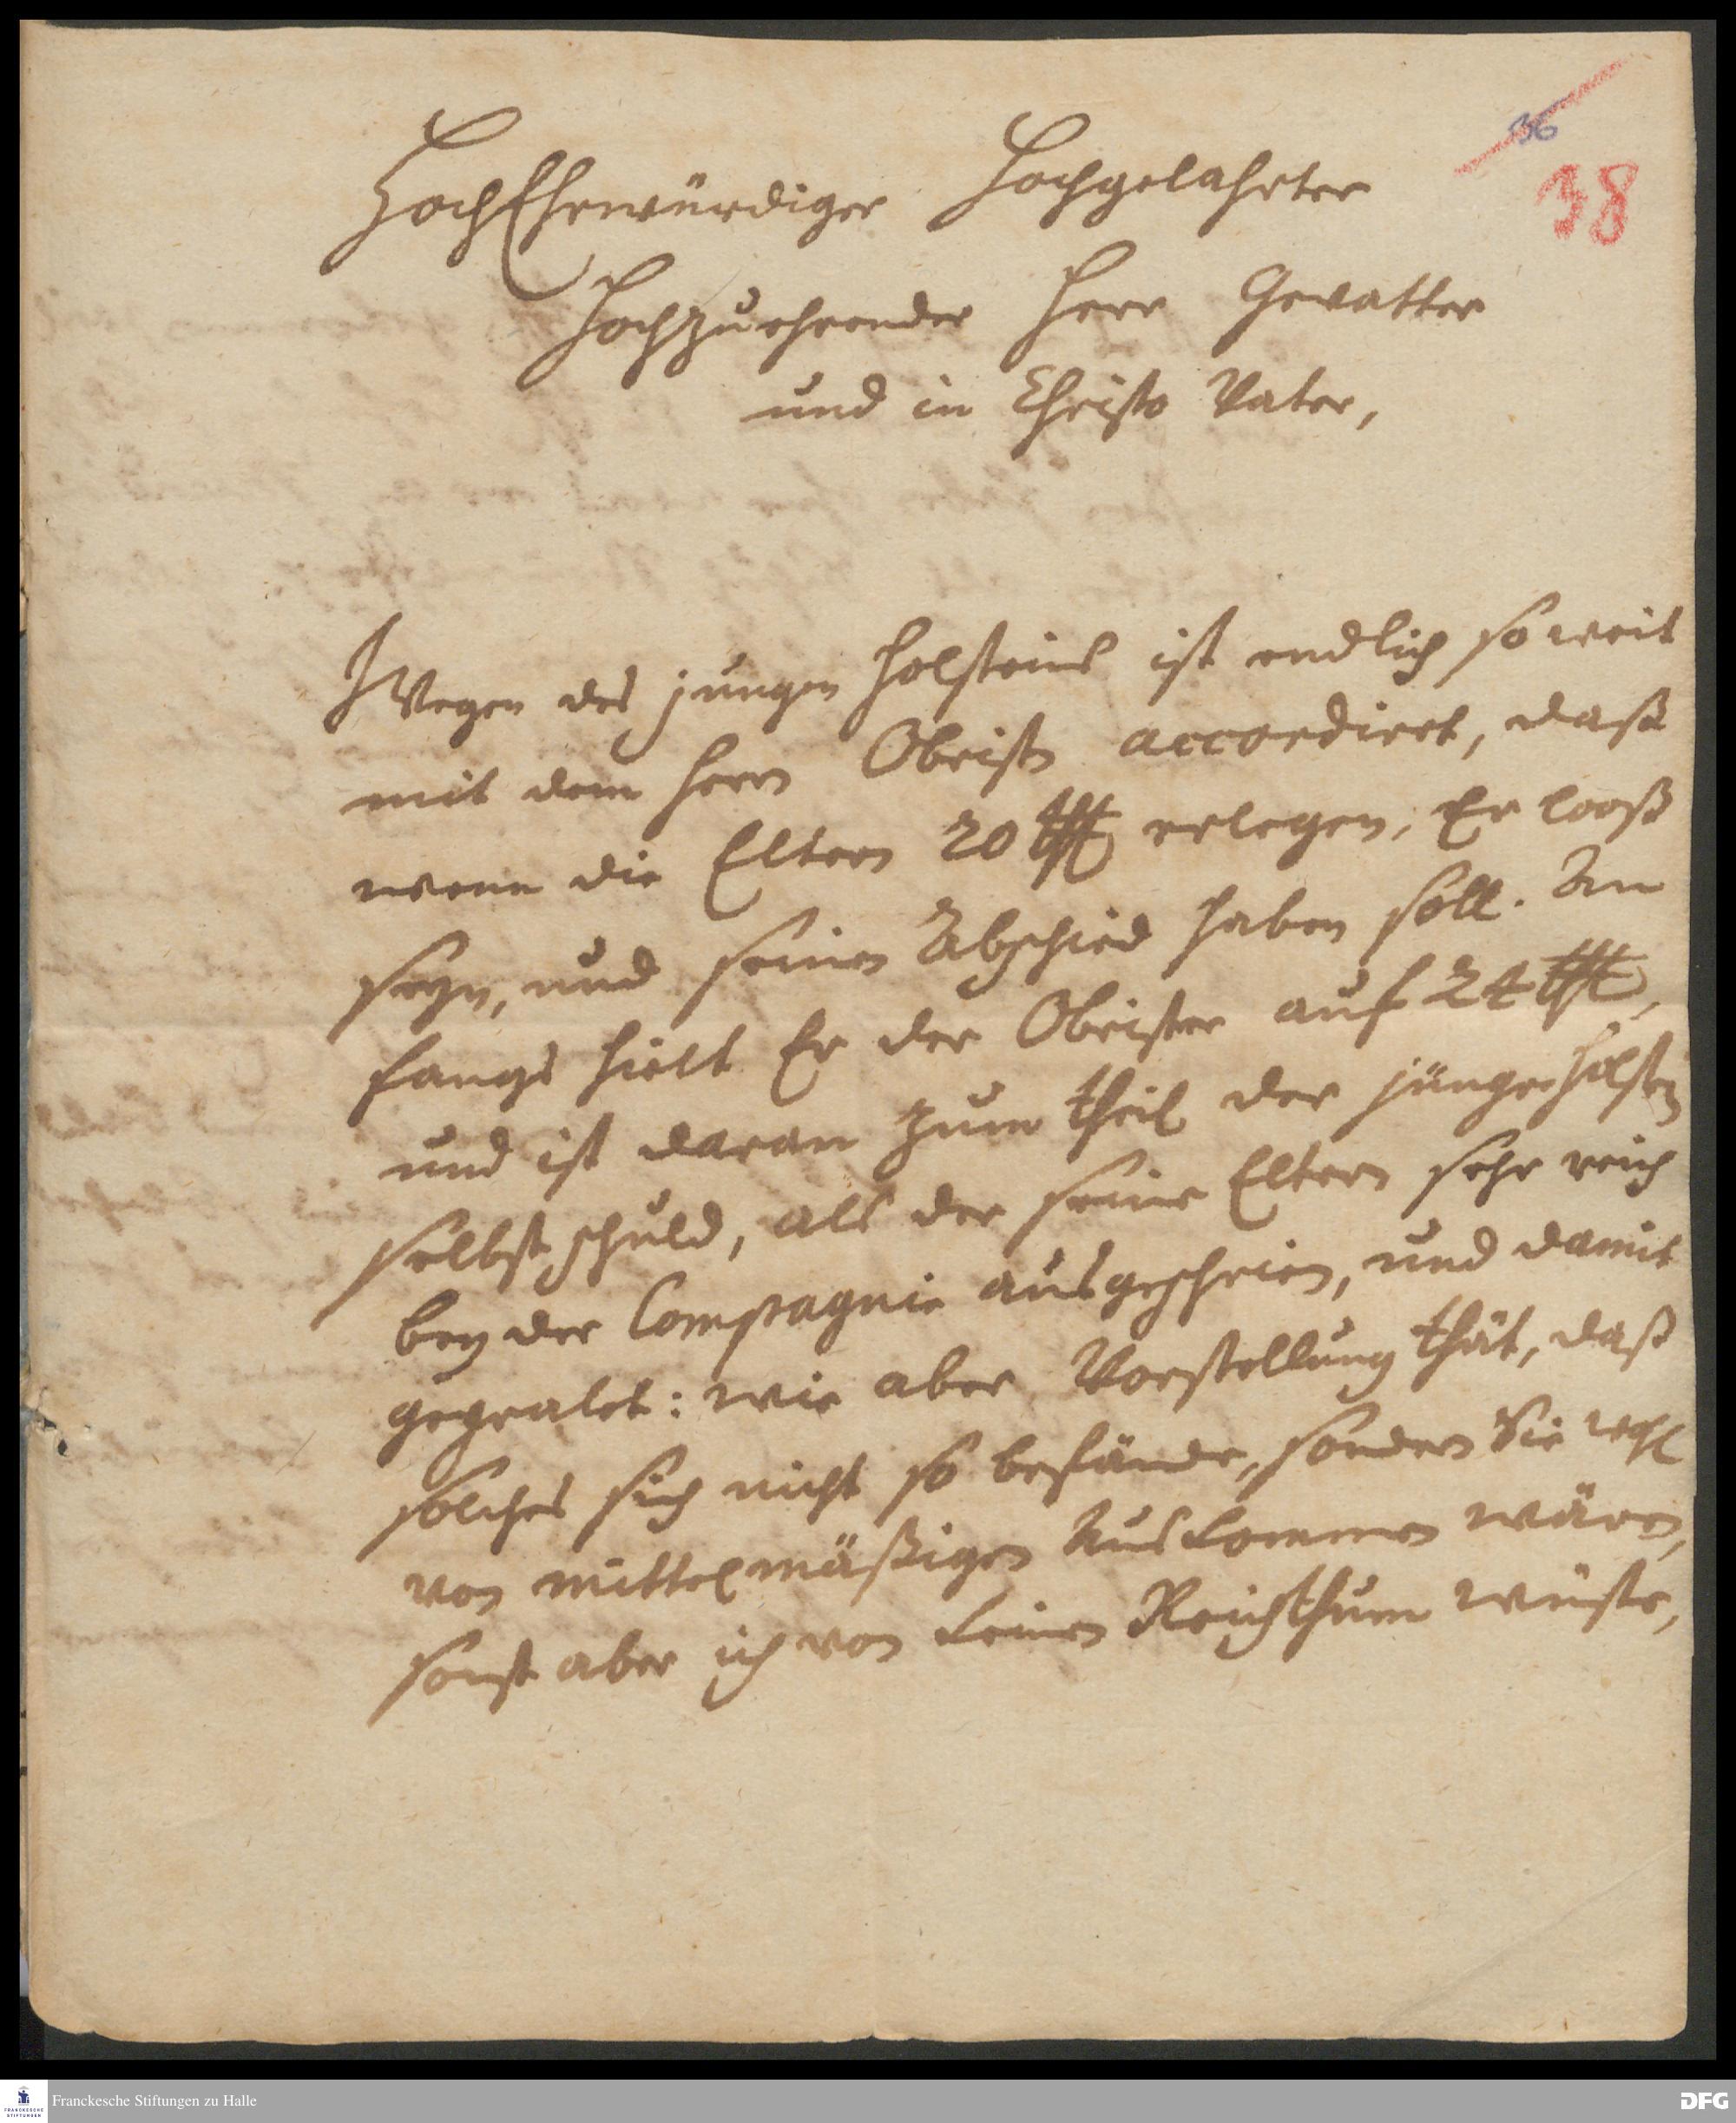 36
38
HochEhrwürdiger Hochgelahrter
Hochzuehrender Herr Gevatter
und in Christo Vater,
Wegen des jungen Holsteins ist endlich so weit
mit dem Herrn Obristen accordiret, daß
wenn die Eltern 20 thlr erlegen, Er looß
seyn, und seinen Abschied haben soll. An
fangs hielt Er der Obrister auf 24 thlr,
und ist daran zum theil der junge Holstein
selbst schuld, als der seine Eltern sehr reich
bey der Compagnie ausgeschrien, und damit
gepralet: wie aber Vorstellung thät, daß
solches sich nicht so befände, sondern Sie wohl
von mittelmäßigen Auskommen wären,
sonst aber ich von keinen Reichthum wüste,
Franckesche Stiftungen zu Halle
FRANCKESCHE
STIFTUNGEN
DFG